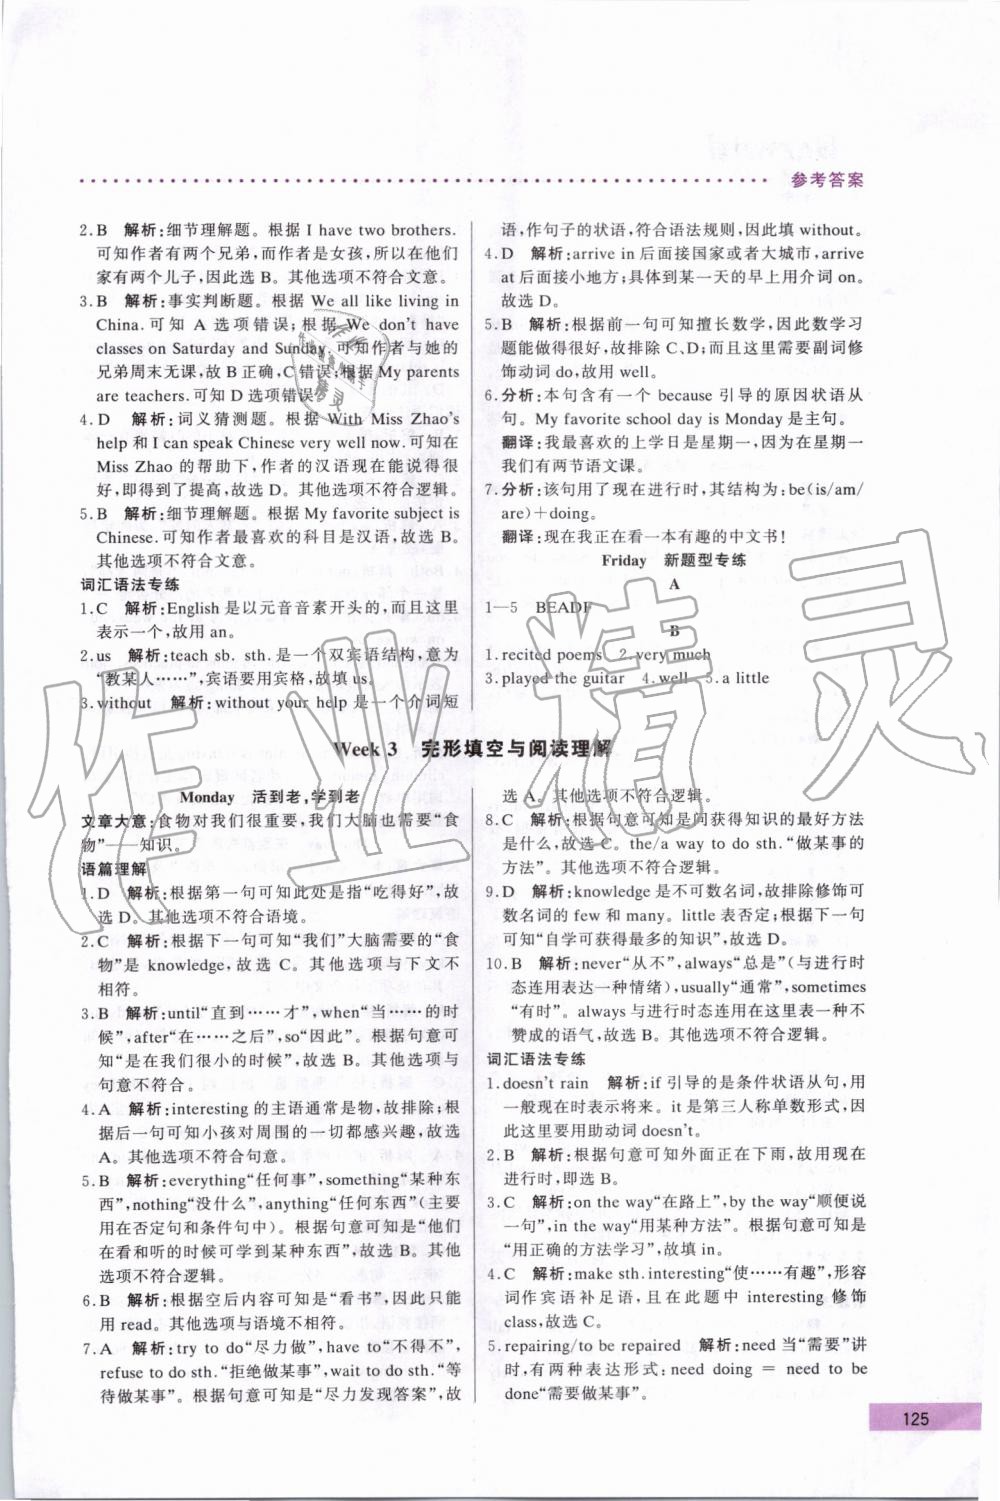 参考答案
2.B 解析:细节理解题。根据 I have two brothers.
可知作者有两个兄弟,而作者是女孩,所以在他们
家有两个儿子,因此选 B。其他选项不符合文意。
3.B 解析:事实判断题。根据 We all like living in
China. 可知 A 选项错误;根据 We don't have
classes on Saturday and Sunday. 可知作者与她的
兄弟周末无课,故 B 正确,C 错误;根据 My parents
are teachers. 可知 D 选项错误。
4.D 解析:词义猜测题。根据 With Miss Zhao's
help 和 I can speak Chinese very well now. 可知在
Miss Zhao 的帮助下,作者的汉语现在能说得很
好,即得到了提高,故选 D。其他选项不符合逻辑。
5.B 解析:细节理解题。根据 My favorite subject is
Chinese. 可知作者最喜欢的科目是汉语,故选 B。
其他选项不符合文意。
词汇语法专练
1.C 解析:English 是以元音音素开头的,而且这里
表示一个,故用 an。
2.us 解析:teach sb. sth. 是一个双宾语结构,意为
“教某人……”,宾语要用宾格,故填 us。
3.without 解析:without your help 是一个介词短
语,作句子的状语,符合语法规则,因此填 without。
4.D 解析:arrive in 后面接国家或者大城市,arrive
at 后面接小地方;具体到某一天的早上用介词 on。
故选 D。
5.B 解析:根据前一句可知擅长数学,因此数学习
题能做得很好,故排除 C、D;而且这里需要副词修
饰动词 do,故用 well。
6.分析:本句含有一个 because 引导的原因状语从
句。My favorite school day is Monday 是主句。
翻译:我最喜欢的上学日是星期一,因为在星期一
我们有两节语文课。
7.分析:该句用了现在进行时,其结构为:be(is/am/
are)+doing。
翻译:现在我正在看一本有趣的中文书!
Friday 新题型专练
A
1—5 BEADF
B
1.recited poems 2.very much
3.played the guitar 4.well 5.a little
Week 3 完形填空与阅读理解
Monday 活到老,学到老
文章大意:食物对我们很重要,我们大脑也需要“食
物”——知识。
语篇理解
1.D 解析:根据第一句可知此处是指“吃得好”,故
选 D。其他选项不符合语境。
2.C 解析:根据下一句可知“我们”大脑需要的“食
物”是 knowledge,故选 C。其他选项与下文不
相符。
3.B 解析:until“直到……才”,when“当……的时
候”,after“在……之后”,so“因此”。根据句意可
知“是在我们很小的时候”,故选 B。其他选项与
句意不符合。
4.A 解析:interesting 的主语通常是物,故排除;根
据后一句可知小孩对周围的一切都感兴趣,故选
A。其他选项不符合句意。
5.B 解析:everything“任何事”,something“某种东
西”,nothing“没什么”,anything“任何东西”(主要
用在否定句和条件句中)。根据句意可知是“他们
在看和听的时候可学到某种东西”,故选 B。其他
选项不符合逻辑。
6.B 解析:根据空后内容可知是“看书”,因此只能
用 read。其他选项与语境不相符。
7.A 解析:try to do“尽力做”,have to“不得不”,
refuse to do sth.“拒绝做某事”,wait to do sth.“等
待做某事”。根据句意可知是“尽力发现答案”,故
选 A。其他选项不符合逻辑。
8.C 解析:根据句意可知是问获得知识的最好方法
是什么,故选 C。the/a way to do sth.“做某事的
方法”。其他选项不符合逻辑。
9.D 解析:knowledge 是不可数名词,故排除修饰可
数名词的 few 和 many。little 表否定;根据下一句
可知“自学可获得最多的知识”,故选 D。
10.B 解析:never“从不”,always“总是”(与进行时
态连用表达一种情绪),usually“通常”,sometimes
“有时”。always 与进行时态连用在这里表示一种不
赞成的语气,故选 B。其他选项不符合逻辑。
词汇语法专练
1.doesn't rain 解析:if 引导的是条件状语从句,用
一般现在时表示将来。it 是第三人称单数形式,因
此这里要用助动词 doesn't。
2.B 解析:根据句意可知外面正在下雨,故用现在
进行时,即选 B。
3.C 解析:on the way“在路上”,by the way“顺便说
一句”,in the way“用某种方法”。根据句意可知是
“用正确的方法学习”,故填 in。
4.C 解析:make sth. interesting“使……有趣”,形容
词作宾语补足语,且在此题中 interesting 修饰
class,故选 C。
5.repairing/to be repaired 解析:need 当“需要”讲
时,有两种表达形式:need doing = need to be
done“需要做某事”。
125
作业精灵